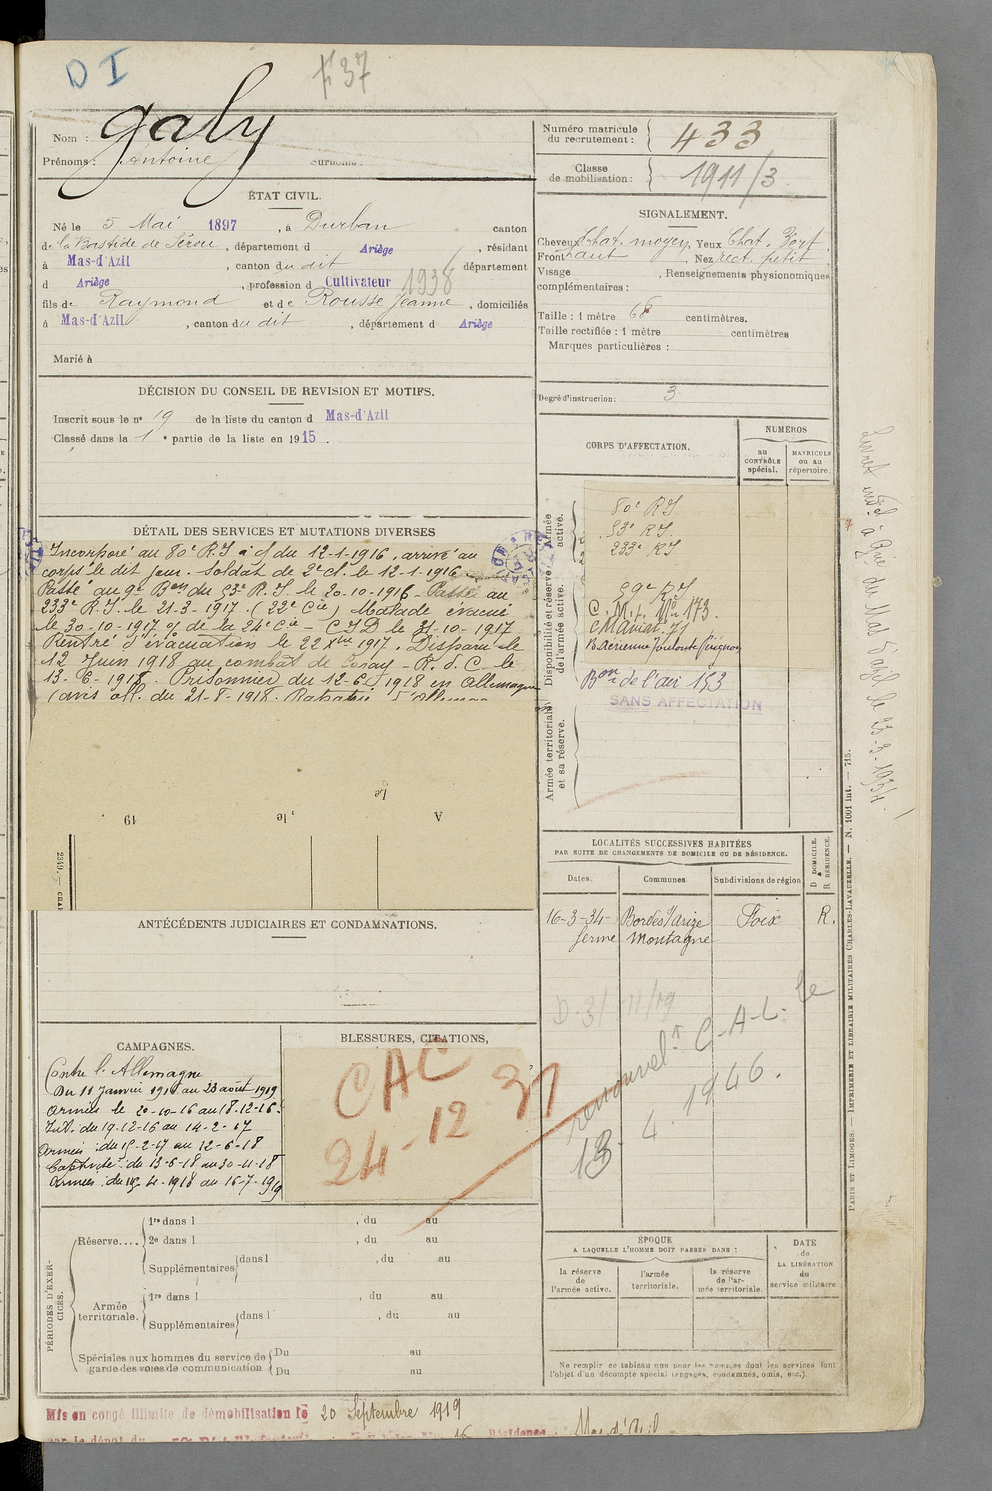 D I
F 37
Nom : Galy
Prénoms : Antoine Surnoms :
Numéro matricule du recrutement : 433
Classe de mobilisation : 1911/3
ÉTAT CIVIL.
Né le 5 Mai 1897, à Durban canton
de la Bastide de Sérou, département d Ariège, résidant
à Mas-d'Azil, canton du dit département
d Ariège, profession d Cultivateur 1938
fils de Raymond et de Rousse Jeanne, domiciliés
à Mas-d'Azil, canton du dit, département d Ariège
Marié à
SIGNALEMENT.
Cheveux Chat. moyen, Yeux Chat. Fort
Front haut, Nez rect. petit,
Visage , Renseignements physionomiques
complémentaires :
Taille : 1 mètre 68 centimètres.
Taille rectifiée : 1 mètre centimètres
Marques particulières :
Degré d'instruction : 3
DÉCISION DU CONSEIL DE REVISION ET MOTIFS.
Inscrit sous le nº 19 de la liste du canton d Mas-d'Azil
Classé dans la 1e partie de la liste en 1915.
DÉTAIL DES SERVICES ET MUTATIONS DIVERSES
Incorporé au 80e R.I à c/ du 12-1-1916, arrivé au
corps le dit jour. Soldat de 2e cl. le 12-1-1916
Passé au 9e Bon du 53e R.I. le 20-10-1916 - Passé au
233e R.I. le 21-3-1917. (22e Cie) Malade évacué
le 30-10-1917 de la 24e Cie - CID le 31-10-1917
Rentré d'évacuation le 22 Xbre 1917. Disparu le
12 Juin 1918 au combat de - R. d. C. le
13-6-1918. Prisonnier du 12-6-1918 en Allemagne
(avis off. du 21-8-1918. Rapatrié d'Allemag
Le
19 , le, A
2349. — CHA
CORPS D'AFFECTATION.
NUMÉROS
au CONTRÔLE spécial.
MATRICULE ou au répertoire.
Armée active.
Disponibilité et réserve de l'armée active.
Armée territoriale et sa réserve.
80e R.I.
53e R.I.
233e R.I
59e R.I
C. M. 173.
B. Aérienne Toulouse
Bon de l'air 153
SANS AFFECTATION
Livret indel à Gie du Mas d'Azil le 23-3-1934
LOCALITÉS SUCCESSIVES HABITÉES
PAR SUITE DE CHANGEMENTS DE DOMICILE OU DE RÉSIDENCE.
Dates. Communes. Subdivisions de région
D DOMICILE. R RÉSIDENCE.
16-3-34 Bordes s/Arize Foix R.
ferme Montagne
renouvelt C-A-L. le
13. 4. 1946.
ANTÉCÉDENTS JUDICIAIRES ET CONDAMNATIONS.
CAMPAGNES.
Contre l'Allemagne
Du 11 Janvier 1916 au 23 août 1919
Armées le 20-10-16 au 18-12-16.
Int. du 19-12-16 au 14-2-17
Armées : du 15-2-17 au 12-6-18
Captivité : du 13-6-18 au 30-11-18
Armées : du 15-4-1918 au 16-7-1919
BLESSURES, CITATIONS,
CAC
24-12 37
PÉRIODES D'EXERCICES.
Réserve.... 1re dans l , du au
2e dans l , du au
Supplémentaires dans l , du au
Armée territoriale. 1re dans l , du au
Supplémentaires dans l , du au
Spéciales aux hommes du service de garde des voies de communication
Du au
Du au
ÉPOQUE
A LAQUELLE L'HOMME DOIT PASSER DANS :
la réserve de l'armée active.
l'armée territoriale.
la réserve de l'armée territoriale.
DATE de LA LIBÉRATION du service militaire
Ne remplir ce tableau que pour les hommes dont les services font
l'objet d'un décompte spécial (engagés, condamnés, omis, etc.).
PARIS ET LIMOGES. — IMPRIMERIE ET LIBRAIRIE MILITAIRES CHARLES-LAVAUZELLE. — N. 1001 int. — 715.
Mis en congé illimité de démobilisation le 20 Septembre 1919
par le dépôt du Résidence : Mas d'Azil